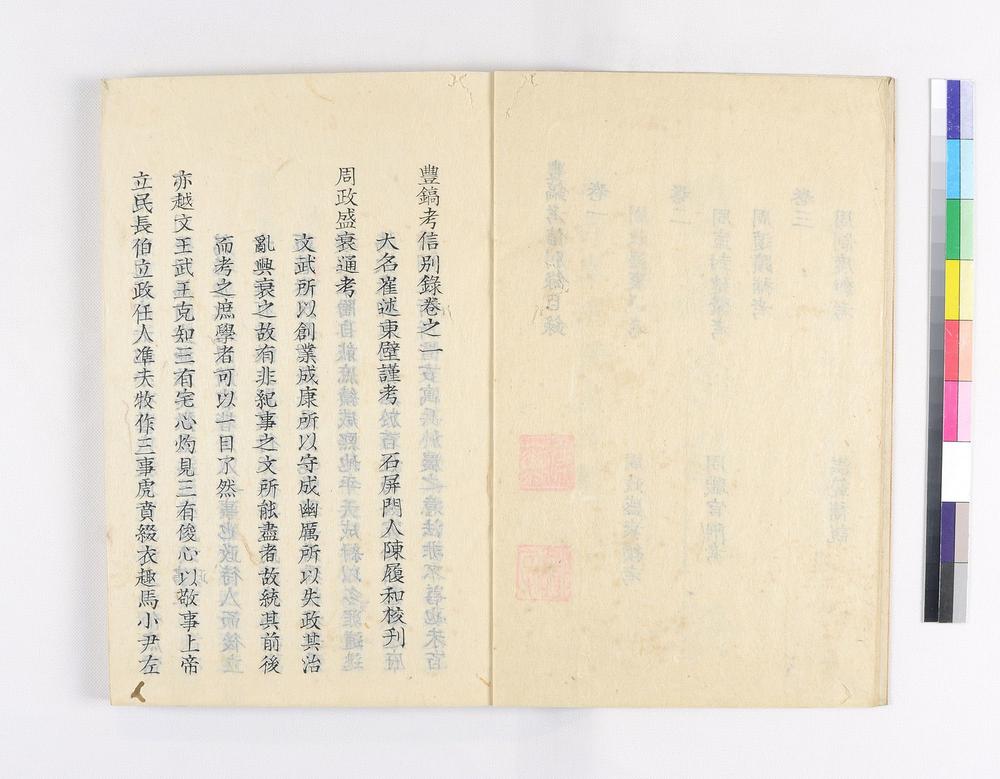 豐鎬考信別錄卷之一
大名崔述東壁謹考 石屏門人陳履和核刊
周政盛衰通考
文武所以創業成康所以守成幽厲所以失政其治
亂興衰之故有非紀事之文所能盡者故統其前後
而考之庶學者可以一目了然
亦越文王武王克知三有宅心灼見三有俊心以敬事上帝
立民長伯立政任人準夫牧作三事虎賁綴衣趣馬小尹左